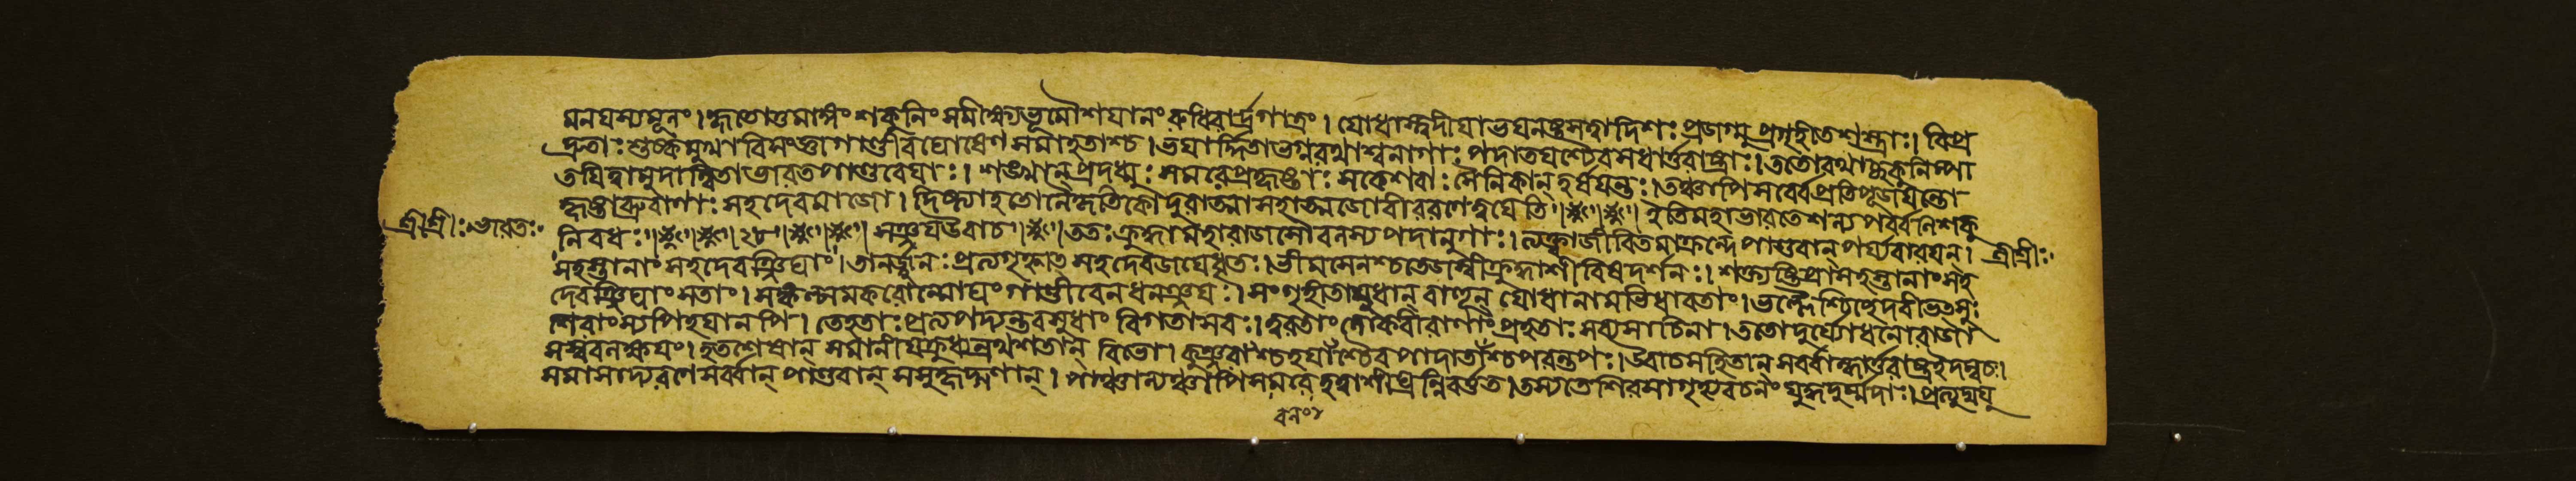 মনঘস্যসূনং। হৃতোত্তমাঙ্গং শকুনিং সমীক্ষ্য ভূমৌ শযানং রুধিরার্দ্রগাত্রং। যোধাস্ত্বদীযা ভযনষ্টসত্বা দিশঃ প্রজগ্মু প্রগৃহীতশস্ত্রাঃ। বিপ্র
দ্রুতাঃ শুষ্কমুখা বিসংজ্ঞা গাণ্ডীবঘোষেণ সমাহতাশ্চ। ভযার্দ্দিতা ভগ্নরথাশ্বনাগাঃ পদাতযশ্চৈব সধার্ত্তরাষ্ট্রাঃ। ততো রথাচ্ছকুনিম্পা
তযিত্বা মুদান্বিতা ভারত পাণ্ডবেযাঃ। শঙ্খান্ প্রদধ্মুঃ সমরে প্রহৃষ্টাঃ সকেশবাঃ সৈনিকান্ হর্ষযন্তঃ। তঞ্চাপি সর্বে প্রতিপূজযন্তো
হৃষ্টা ব্রুবাণাঃ সহদেবমাজৌ। দিষ্ট্যা হতো নৈকৃতিকো দুরাত্মা সহাত্মজো বীর রণে ত্বযেতি। ইতি মহাভারতে শল্যপর্ব্বনি শকু
শ্রীশ্রীঃ ভারতঃ
নিবধঃ। ২৮। সঞ্জয উবাচ। ততঃ ক্রুদ্ধা মহারাজ সৌবলস্য পদানুগাঃ। ত্যক্ত্বা জীবিতমাক্রন্দে পাণ্ডবান্ পর্য্যবারযন্।
শ্রীশ্রীঃ
সহস্তানাং সহদেব শ্রিযাং। তানর্জ্জুনঃ প্রত্যগৃহ্নাত সহদেবজযে ধৃতঃ। ভীমসেনশ্চ তেজস্বী ক্রুদ্ধাশীবিষদর্শনঃ। শক্ত্যৃষ্টিপ্রাসহস্তানাং সহ
দেবং জিঘাংসতাং। সঙ্কল্পমকরোন্মোঘং গাণ্ডীবেন ধনঞ্জযঃ। সংগৃহীতাযুধান্ বাহূন্ যোধানামভিধাবতাং। ভল্লৈশ্চিচ্ছেদ বীভৎসুঃ
শিরাংস্যপি হযানপি। তে হতাঃ প্রত্যপদ্যন্ত বসুধাং বিগতাসবঃ। ত্বরতা লোকবীরাণাং প্রহতাঃ সব্যসাচিনা। ততো দুর্য্যোধনো রাজা
সম্ববলক্ষযং। হতশেষান্ সমানীয ক্রুধ্যন্রথশতান্ বিভো। কুঞ্জরাংশ্চ হযাঁশ্চৈব পাদাতাঁশ্চ পরন্তপঃ। উবাচ সহিতান্ সর্ব্বান্ধার্ত্তরাষ্ট্র ইদম্বচঃ।
সমাসাদ্য রণে সর্ব্বান্ পাণ্ডবান্ সসুহৃদ্গণান্। পাঞ্চাল্যঞ্চাপি সমরে হত্বা শীঘ্রন্নিবর্ত্তত। তস্য তে শিরসা গৃহ্য বচনং যুদ্ধদুর্ম্মদাঃ। প্রত্যুদ্যযু
বলং